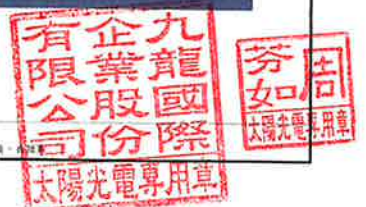 九龍國際
企業股份
有限公司
太陽光電專用章
周
芬如
太陽光電專用章